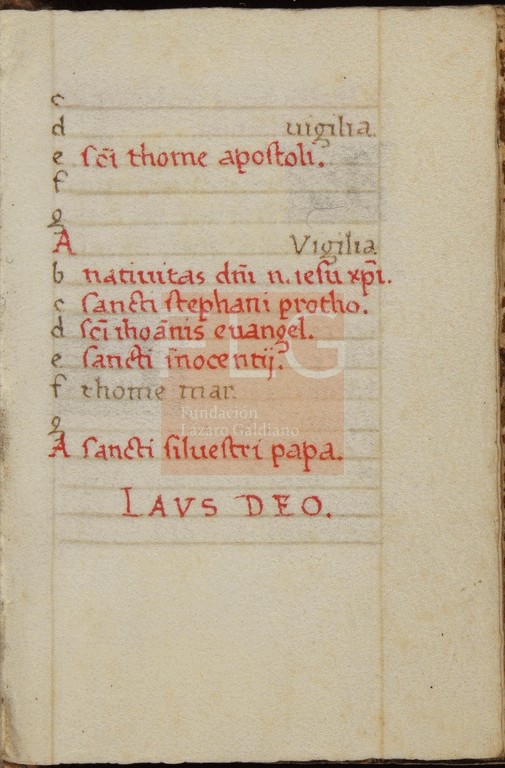 c
d vigilia.
e sc̃i thome apostoli.
f
g
A Vigilia
b natiuitas dm̃i n. iesu xp̃i.
c sancti stephani protho.
d sc̃i ihoãnis euangel.
e sancti inocentij.
f thome mar.
g
A sancti siluestri papa.
LAVS DEO.
FLG
Fundación
Lázaro Galdiano